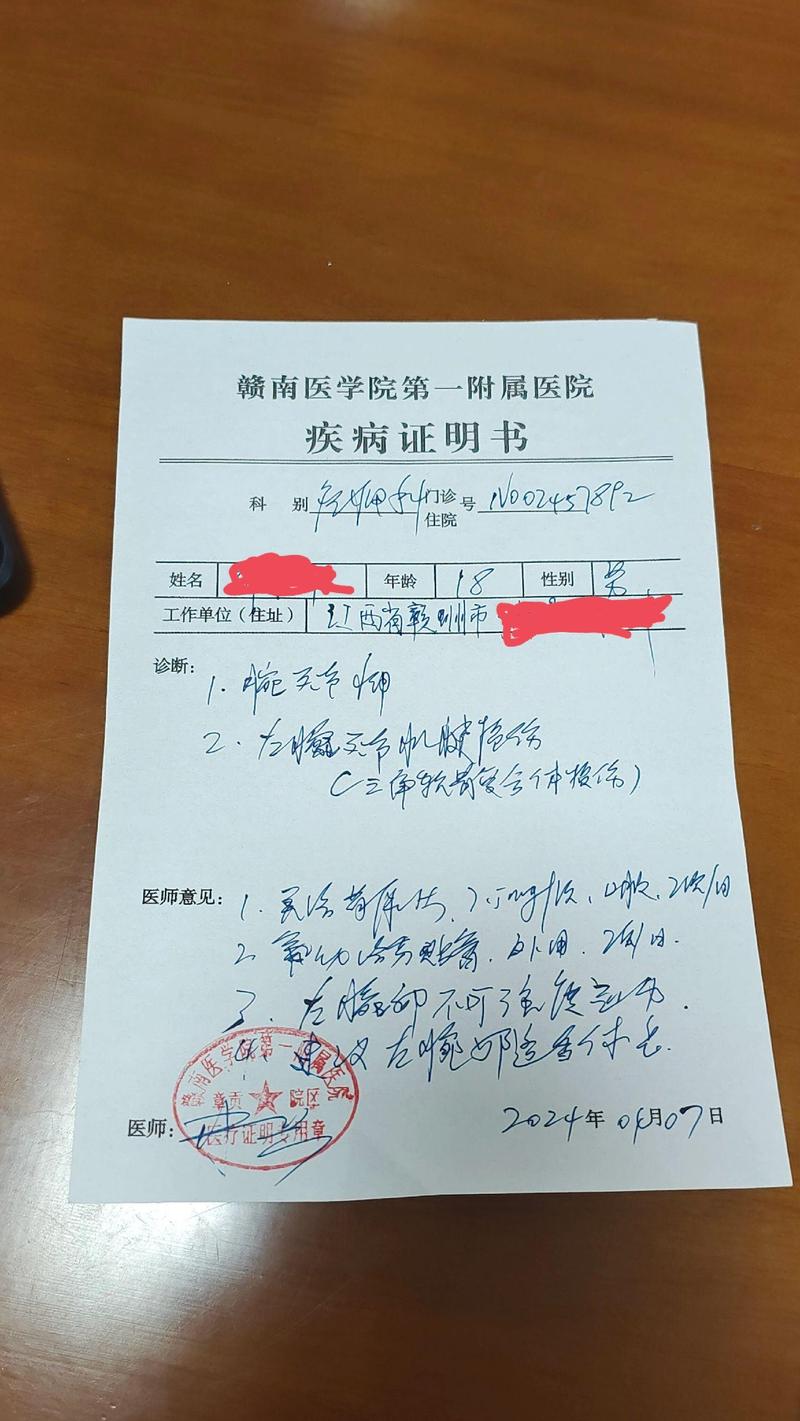 赣南医学院第一附属医院
疾病证明书
科 别 门诊 住院 号 NO02457892
姓名 年龄 18 性别 男
工作单位(住址) 江西省赣州市
诊断:
1. 腕关节
2. 左腕关节肌腱损伤
(三角软骨复合体损伤)
医师意见:
1. 口服, 2次/日
2. 贴膏, 外用, 2次/日.
3. 左腕部不可
4. 建议左腕部适当休息
赣南医学院第一附属医院
章贡 院区
医疗证明专用章
医师:
2024年04月07日